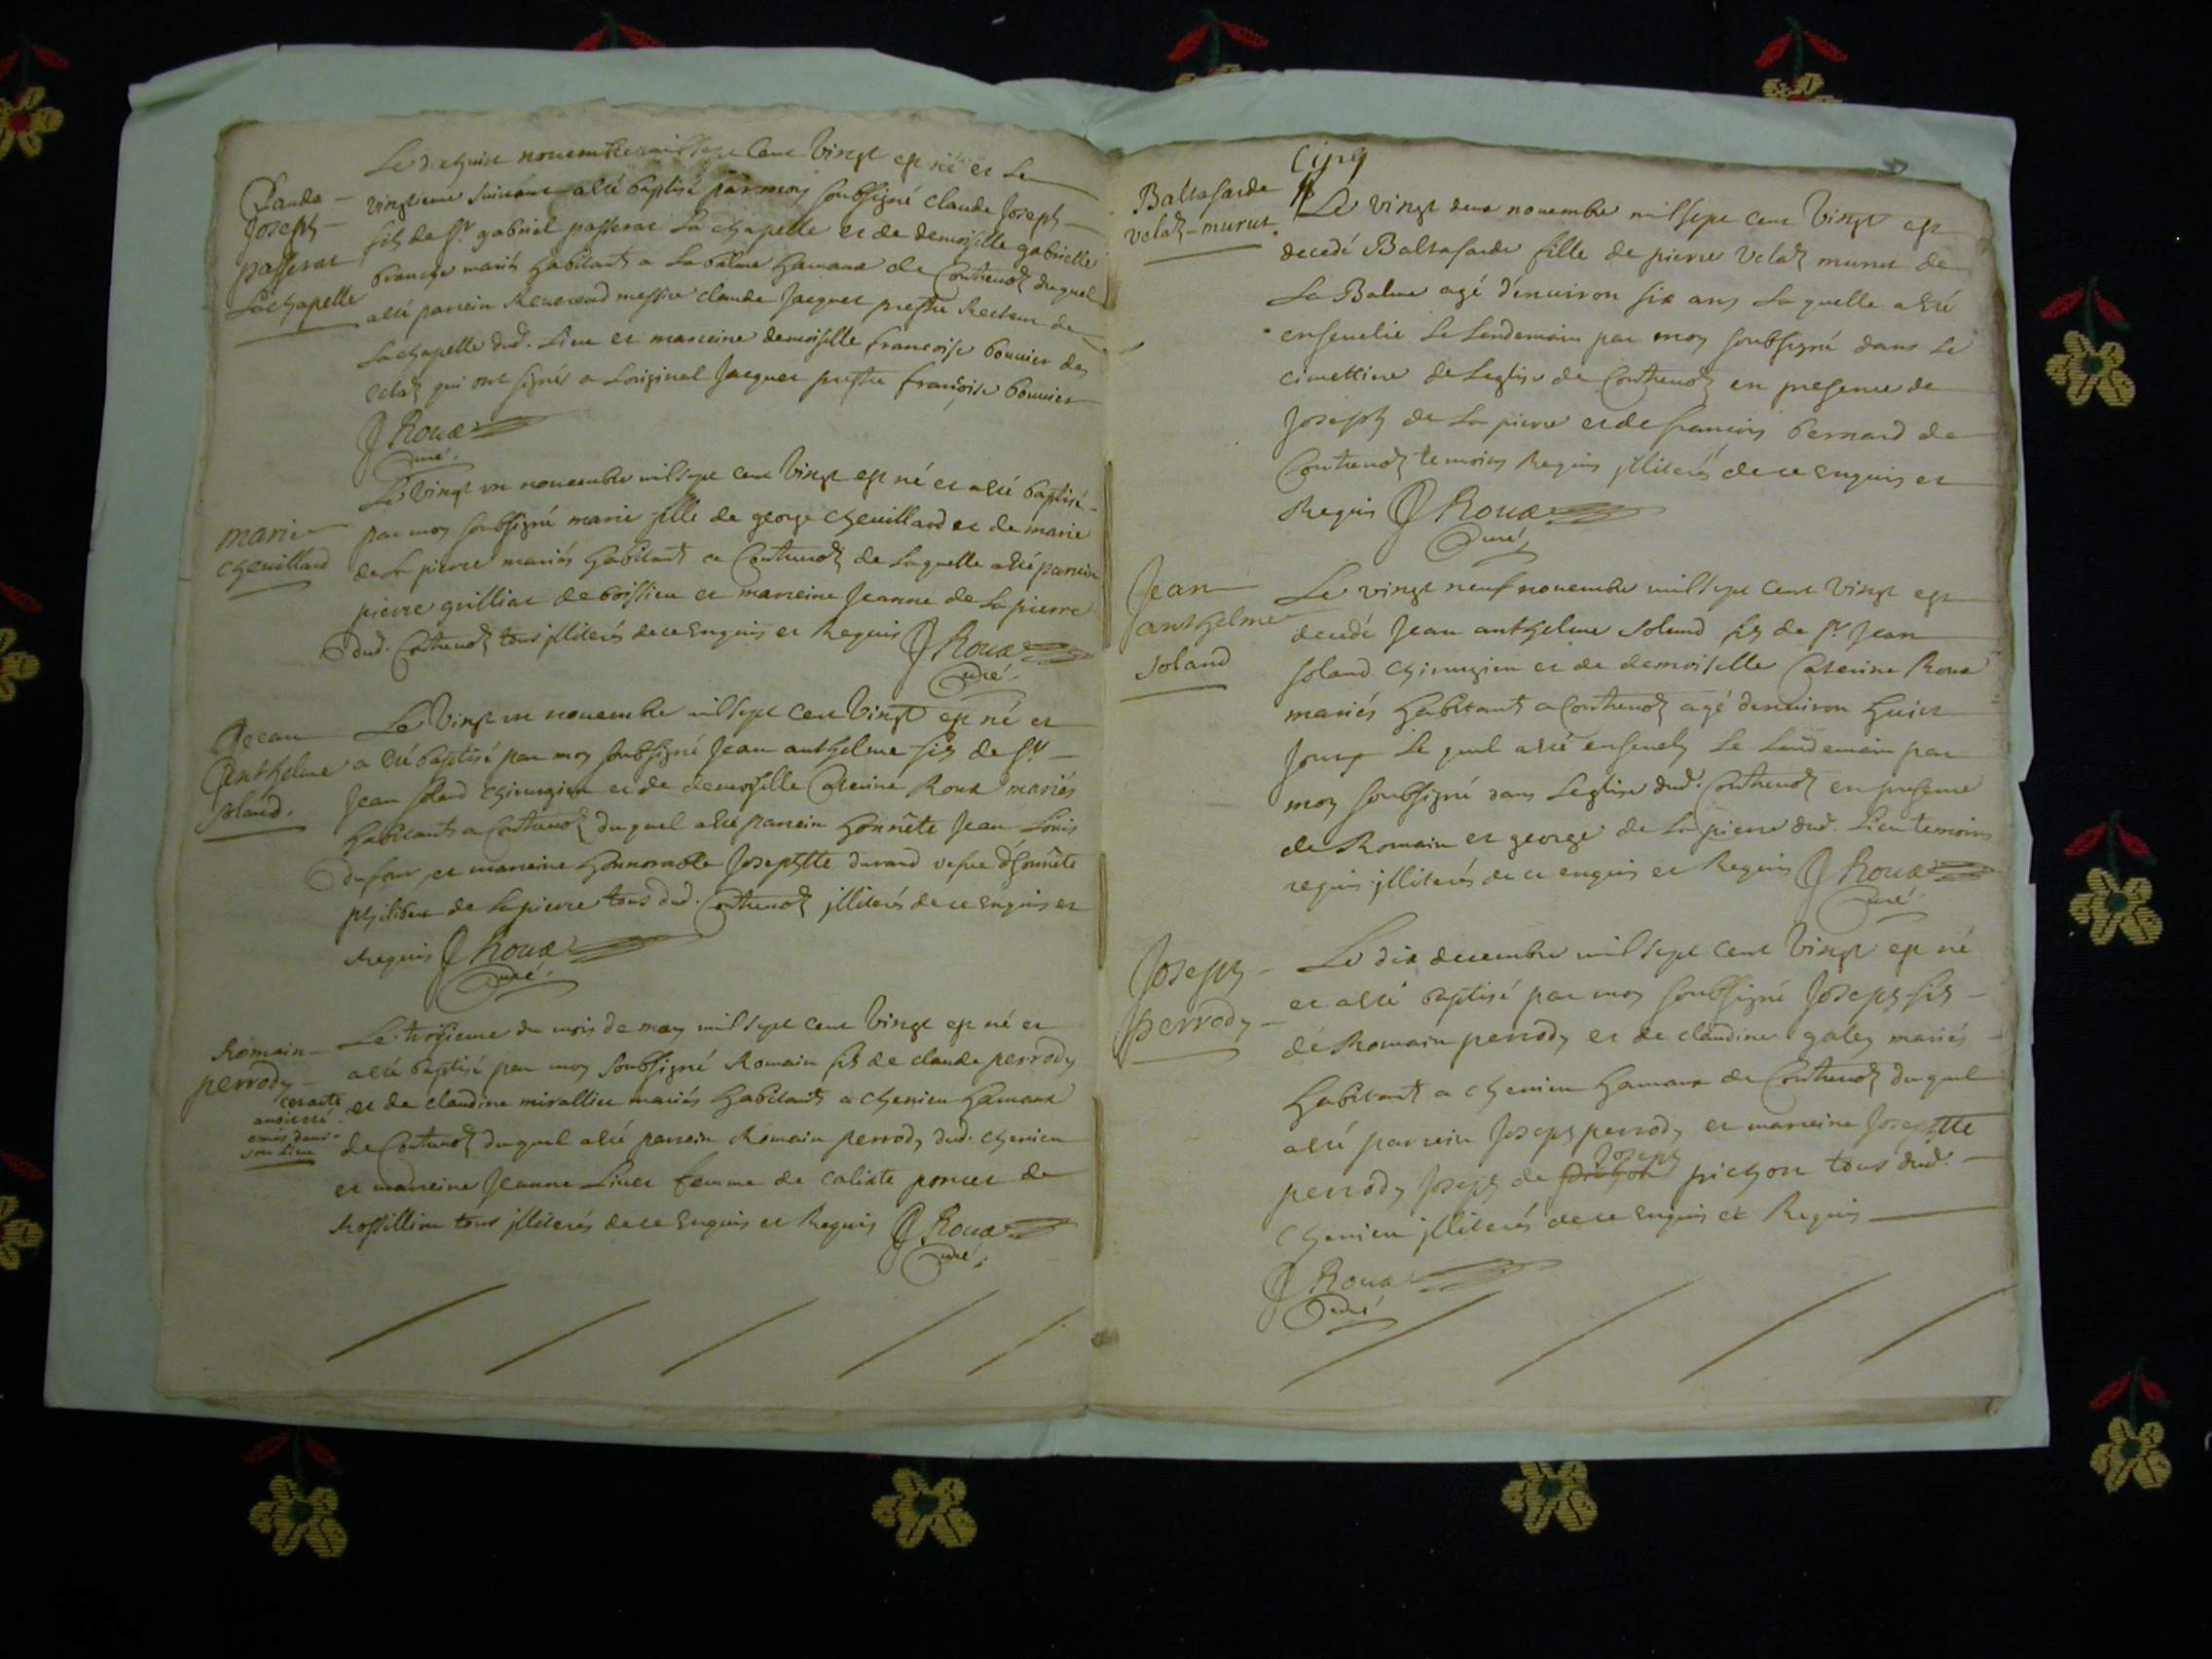 Claude -
Joseph -
passerat
Lachapelle
Le dixhuit novembre mil sept cent vingt est né et Le
vingtieme suivant a eté baptisé par moy soubsigné claude Joseph
fils de sr. gabriel passerat La chapelle et de demoiselle gabrielle
mariés habitants a La balme hamaux de Contrevoz duquel
a eté parrein Reverend messire claude Jacquet prestre Recteur de
La chapelle dud. Lieu et marreine demoiselle francoise bouvier des
velaz qui ont signés a Loriginal Jacquet prestre francoise bouvier
J Roux
Curé.
marie
chevillard
Le vingt un novembre mil sept cent vingt est né et a eté baptisé
par moy soubsigné marie fille de george chevillard et de marie
de La pierre mariés habitants a Contrevoz de Laquelle a eté parrein
pierre guilliat de boissieu et marreine Jeanne de La pierre
dud. Contrevoz tous illiterés de ce Enquis et Requis J Roux
Curé.
Jean
Anthelme
Soland.
Le vingt un novembre mil sept cent vingt est né et
a eté baptisé par moy soubsigné Jean anthelme fils de sr.
Jean soland chirurgien et de demoiselle Caterine Roux mariés
habitants a Contrevoz duquel a eté parrein honnête Jean Louis
dufour et marreine honnorable Josephtte durand vefve d'honnête
philibert de Lapierre tous dud. Contrevoz illiterés de ce Enquis et
Requis J Roux
Curé.
Romain -
perrody -
cet acte
avoit eté
omis dans
son Lieu
Le troisieme du mois de may mil sept cent vingt est né et
a eté baptisé par moy soubsigné Romain fils de claude perrody
et de claudine mirallier mariés habitants a cheniеu hamaux
de Contrevoz duquel a eté parrein Romain perrody dud. chenieu
et marreine Jeanne Livet femme de calixte poncet de
Rossillion tous illiterés de ce Enquis et Requis J Roux
Curé.
Cinq
Baltasarde
velaz-murut.
Le vingt deux novembre mil sept cent vingt est
decedé Baltasarde fille de pierre velaz murut de
La Balme agé d'environ six ans La quelle a eté
ensevelie Le Lendemain par moy soubsigné dans Le
cimettiere de Leglise de Contrevoz en presence de
Joseph de La pierre et de francois bernard de
Contrevoz temoins Requis illiterés de ce Enquis et
Requis J Roux
Curé
Jean
anthelme
soland
Le vingt neuf novembre mil sept cent vingt est
decedé Jean anthelme Soland fils de sr Jean
Soland chirurgien et de demoiselle Caterine Roux
mariés habitants a Contrevoz agé denviron huict
Jours Le quel a eté ensevely Le Lendemain par
moy soubsigné dans Leglise dud. Contrevoz en presence
de Romain et george de La pierre dud. Lieu temoins
requis illiterés de ce enquis et Requis J Roux
Curé.
Joseph -
perrody -
Le dix decembre mil sept cent vingt est né
et a eté baptisé par moy soubsigné Joseph fils -
de Romain perrody et de claudine galey mariés -
habitants a chenieu hamaux de Contrevoz duquel
a eté parrein Joseph perrody et marreine Josephtte
Joseph
perrody Joseph de pichon pichon tous dud. -
Chenieu illiterés de ce Enquis et Requis
J Roux
Curé